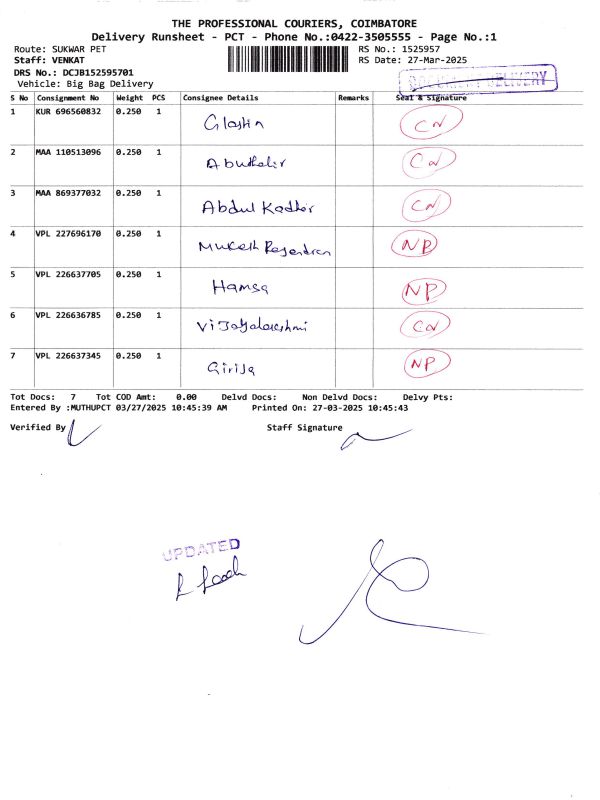 THE PROFESSIONAL COURIERS, COIMBATORE
Delivery Runsheet - PCT - Phone No.:0422-3505555 - Page No.:1
Route: SUKWAR PET RS No.: 1525957
Staff: VENKAT RS Date: 27-Mar-2025
DRS No.: DCJB152595701
Vehicle: Big Bag Delivery
DOCUMENT DELIVERY
S No Consignment No Weight PCS Consignee Details Remarks Seal & Signature
1 KUR 696560832 0.250 1 Glastin CN
2 MAA 110513096 0.250 1 CN
3 MAA 869377032 0.250 1 Abdul Kadhir CN
4 VPL 227696170 0.250 1 Mukesh Rajendran NP
5 VPL 226637705 0.250 1 Hamsa NP
6 VPL 226636785 0.250 1 Vijayalakshmi CN
7 VPL 226637345 0.250 1 Girija NP
Tot Docs: 7 Tot COD Amt: 0.00 Delvd Docs: Non Delvd Docs: Delvy Pts:
Entered By :MUTHUPCT 03/27/2025 10:45:39 AM Printed On: 27-03-2025 10:45:43
Verified By Staff Signature
UPDATED